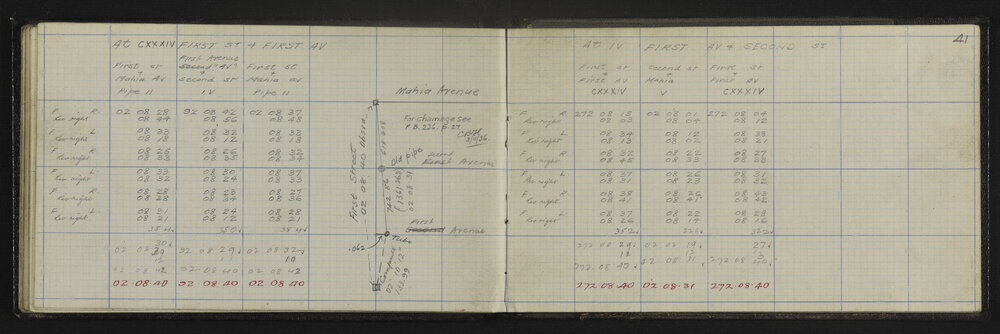 41
At CXXXIV FIRST ST & FIRST AV
First St & Mahia Av Pipe II
First Avenue Second Av & Second St IV
First St & Mahia Av Pipe II
F. R. 02 08 28 92 08 42 02 08 37
Rev right 08 44 08 56 08 48
F. L 08 33 08 32 08 33
Rev right 08 18 08 12 08 18
F. R 08 25 08 26 08 32
Rev right 08 33 08 35 08 34
F. L 08 33 08 30 08 37
Rev right 08 32 08 24 08 33
F. R 08 28 08 23 08 27
Rev right 08 28 08 34 08 36
F. L 08 21 08 24 08 28
Rev right 08 21 08 12 08 21
354 350 384
30
02 02 29 92 08 29 02 08 32
12 11 10
02 08 42 92 08 40 02 08 42
02 08·40 92 08·40 02 08·40
Mahia Avenue
For chainage see
F.B. 226. p. 27
First Street
02 08 40 Observ.
518.208
Old pipe
Second
East Avenue
742.86
(1361.068)
02 08 31
First
Second Avenue
.062
Tube
Compute
02° 10' 12"
133.99
At IV FIRST AV & SECOND ST
First St & First Av CXXXIV
Second St Mahia V
First St & First Av CXXXIV
F. R. 272 08 15 02 08 01 272 08 04
Rev right 08 03 08 04 08 12
F. L 08 34 08 12 08 33
Rev right 08 13 08 02 08 21
F. R. 08 32 08 22 08 27
Rev right 08 45 08 33 08 28
F. L 08 37 08 26 08 31
Rev right 08 31 08 23 08 32
F. R. 08 38 08 26 08 43
Rev right 08 41 08 41 08 42
F. L. 08 37 08 22 08 28
Rev right 08 26 08 14 08 16
352 226 322
272 08 29 02 02 19 27
11 12 13
272 08 40 02 08 31 272 08 40
272 08·40 02 08·31 272 08·40